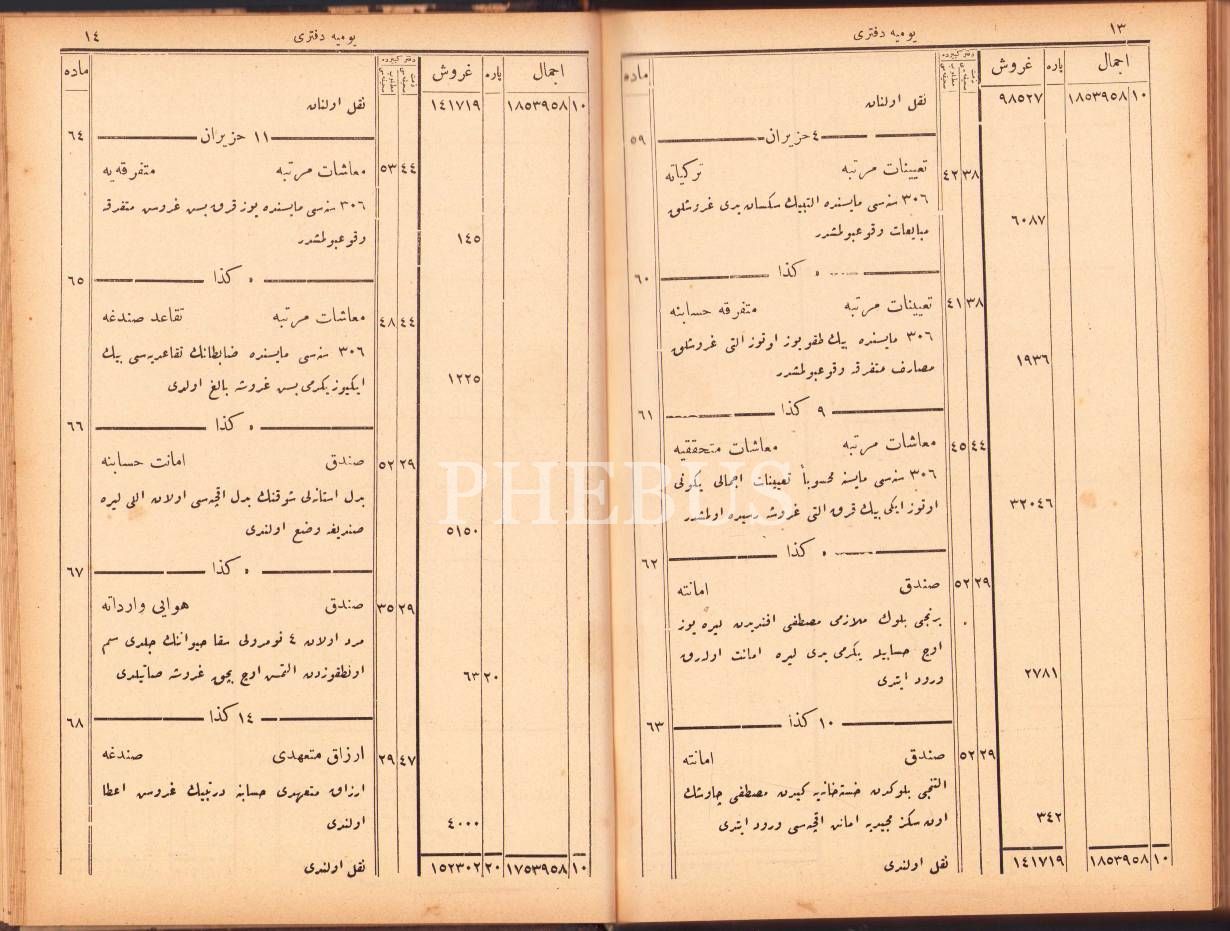 ١٣
يوميه دفترى
ماده
دفتر كبيرده
غروش
پاره
اجمال
نقل اولنان
٩٨٥٢٧
١٨٥٣٩٥٨ ١٠
٥٩
٤ حزيران
تعيينات مرتبه
٤٢ ٣٨
٣٠٦ سنه‌سى مايسنده التيبيك سكسان يدى غروشلق
مبايعات وقوعبولمشدر
٦٠٨٧
٦٠
٥ كذا
تعيينات مرتبه متفرقه حسابنه
٤١ ٣٨
٣٠٦ مايسنده بيك طقوزيوز اوتوز التى غروشلق
مصارف متفرقه وقوعبولمشدر
١٩٣٦
٦١
٩ كذا
معاشات مرتبه معاشات متحققيه
٤٥ ٤٤
٣٠٦ سنه‌سى مايسنه محسوباً تعيينات اجمالى يكونى
اوتوز ايكى بيك قرق التى غروشه رسيده اولمشدر
٣٢٠٤٦
٦٢
٥ كذا
صندق امانته
٥٢ ٢٩
برنجى بلوك ملازمى مصطفى افنديدن ليره يوز
اوچ حسابيله يكرمى يدى ليره امانت اوله‌رق
ورود ايتدى
٢٧٨١
٦٣
١٠ كذا
صندق امانته
٥٢ ٢٩
التنجى بلوكدن خسته‌خانه‌يه كيدن مصطفى چاوشك
اون سكز مجيديه امانت اقچه‌سى ورود ايتدى
٣٤٢
نقل اولندى
١٤١٧١٩
١٨٥٣٩٥٨ ١٠
١٤
يوميه دفترى
ماده
دفتر كبيرده
غروش
پاره
اجمال
نقل اولنان
١٤١٧١٩
١٨٥٣٩٥٨ ١٠
٦٤
١١ حزيران
معاشات مرتبه متفرقه‌يه
٥٣ ٤٤
٣٠٦ سنه‌سى مايسنده يوز قرق بش غروش متفرقه
وقوعبولمشدر
١٤٥
٦٥
٥ كذا
معاشات مرتبه تقاعد صندغه
٤٨ ٤٤
٣٠٦ سنه‌سى مايسنده ضابطانك تقاعديه‌سى بيك
ايكيوز يكرمى بش غروشه بالغ اولدى
١٢٢٥
٦٦
٥ كذا
صندق امانت حسابنه
٥٢ ٢٩
بدل استانلى شوقينك بدل اقچه‌سى اولان اللى ليره
صنديغه وضع اولندى
٥١٥٠
٦٧
٥ كذا
صندق هوايى وارداته
٣٥ ٢٩
مرد اولان ٤ نومرولى سقا حيواننك جلدى سم
اونطقوزدن التمش اوچ بچق غروشه صاتيلدى
٦٣ ٢٠
٦٨
١٤ كذا
ارزاق متعهدى صندغه
٢٩ ٤٧
ارزاق متعهدى حسابنه درتبيك غروش اعطا
اولندى
٤٠٠٠
نقل اولندى
١٥٢٣٠٢ ٢٠
١٧٥٣٩٥٨ ١٠
PHEBUS